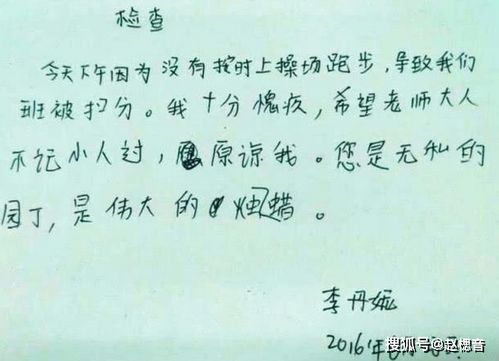 检查
今天下午因为没有按时上操场跑步，导致我们
班被扣分。我十分愧疚，希望老师大人
不记小人过，原谅我。您是无私的
园丁，是伟大的蜡烛。
李丹妮
2016年
搜狐号@赵楒音